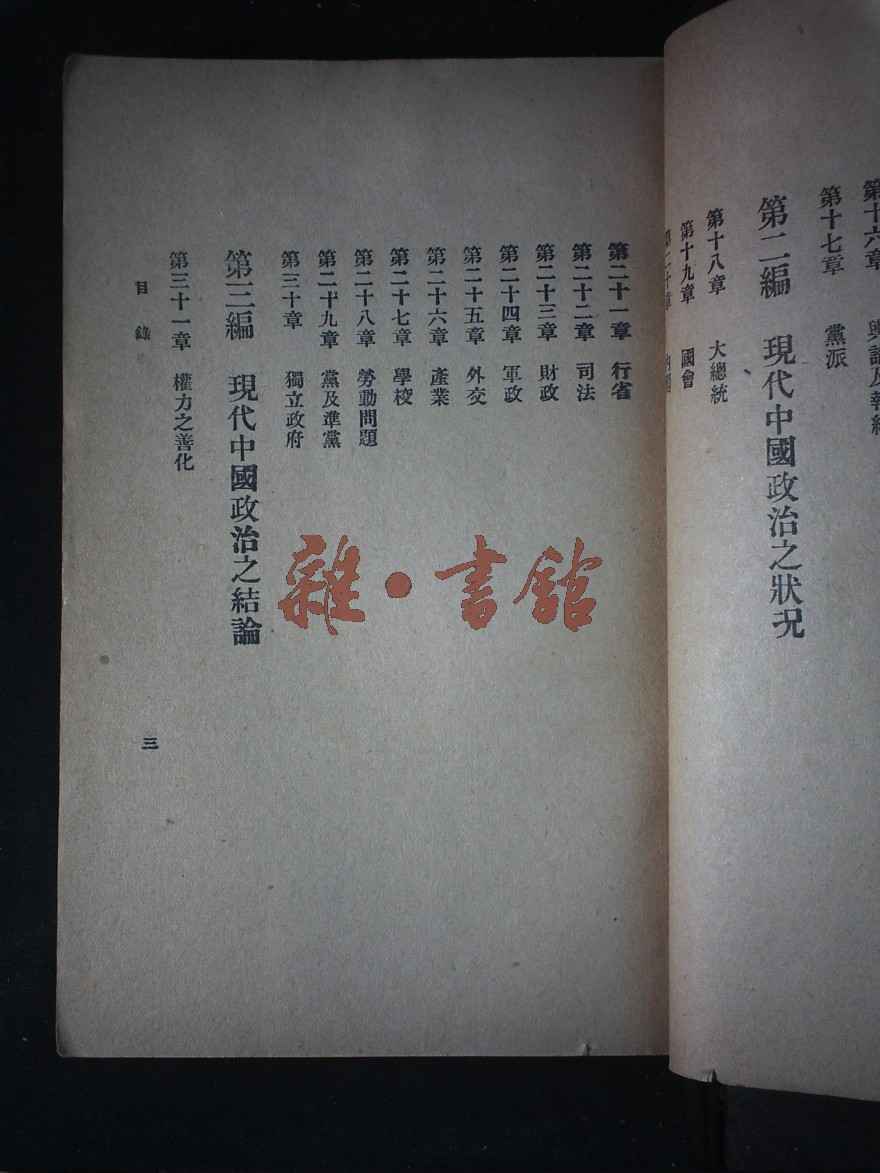 第十六章 輿論及報紙
第十七章 黨派
第二編 現代中國政治之狀況
第十八章 大總統
第十九章 國會
第二十章 內閣
第二十一章 行省
第二十二章 司法
第二十三章 財政
第二十四章 軍政
第二十五章 外交
第二十六章 產業
第二十七章 學校
第二十八章 勞動問題
第二十九章 黨及準黨
第三十章 獨立政府
第三編 現代中國政治之結論
第三十一章 權力之善化
目錄
三
雜·書館